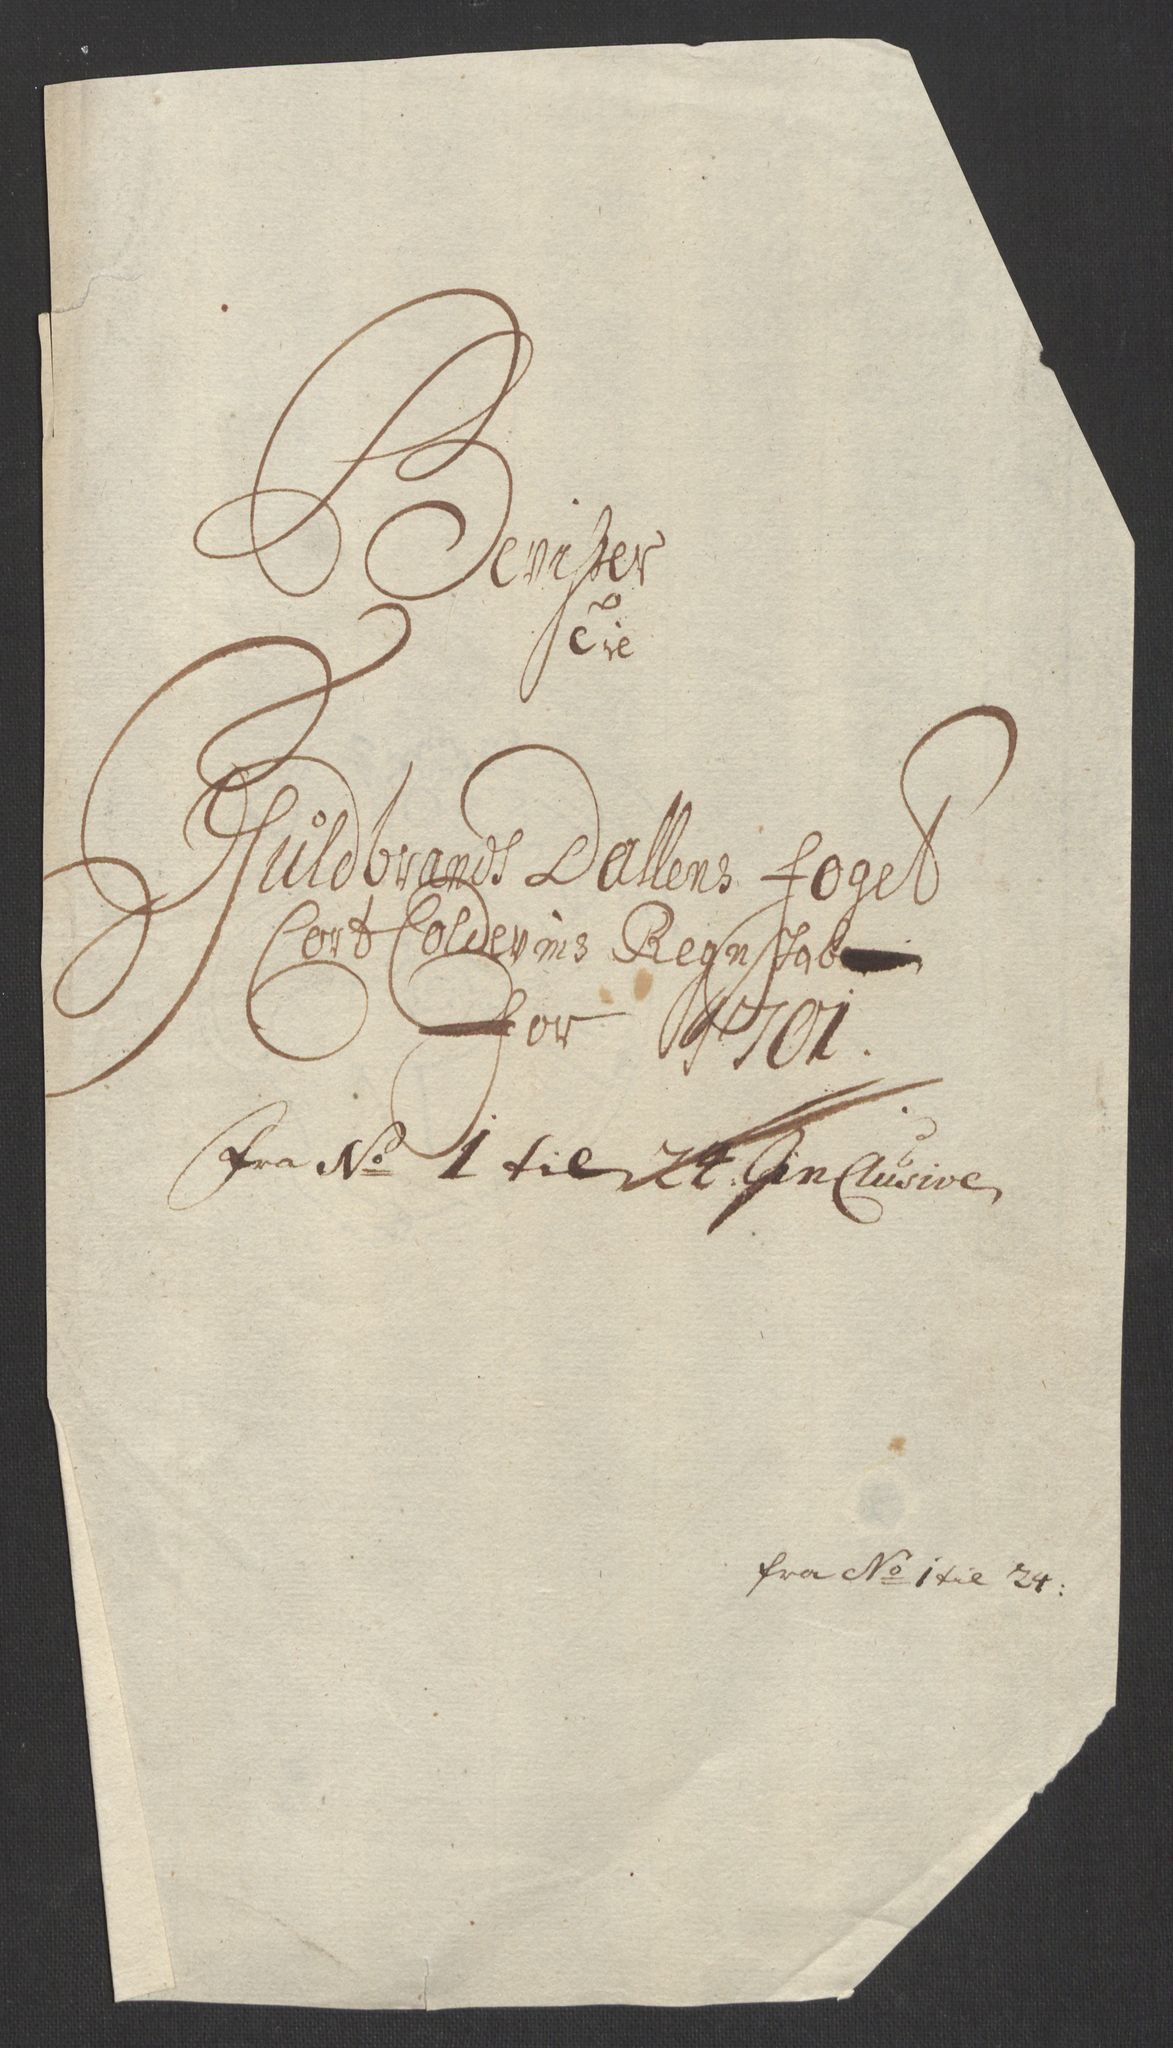 Beviſser
til
Guldbrands Dallens foget
Cort Coldevins Regnſkab
for 1701.
fra No 1 til 24. inclusive
fra No 1 til 24: